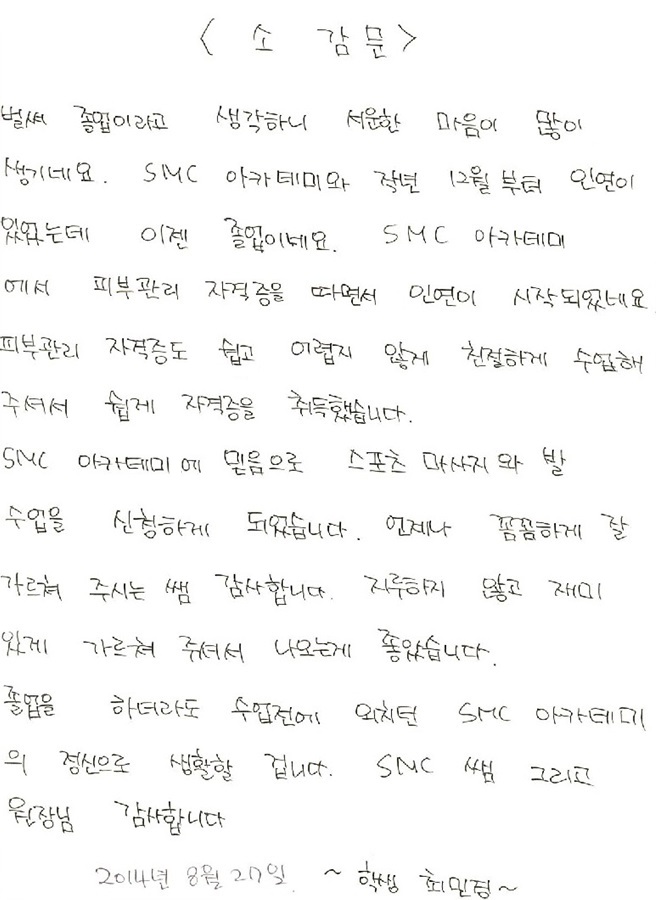 < 소 감문 >
벌써 졸업이라고 생각하니 서운한 마음이 많이
생기네요. SMC 아카데미와 작년 12월부터 인연이
있었는데 이젠 졸업이네요. SMC 아카데미
에서 피부관리 자격증을 따면서 인연이 시작되었네요
피부관리 자격증도 쉽고 어렵지 않게 친절하게 수업해
주셔서 쉽게 자격증을 취득했습니다.
SMC 아카데미에 믿음으로 스포츠 마사지와 발
수업을 신청하게 되었습니다. 언제나 꼼꼼하게 잘
가르쳐 주시는 쌤 감사합니다. 지루하지 않고 재미
있게 가르쳐 주셔서 나오는게 좋았습니다.
졸업을 하더라도 수업전에 외치던 SMC 아카데미
의 정신으로 생활할 겁니다. SMC 쌤 그리고
원장님 감사합니다
2014년 8월 27일. ~ 학생 최민정 ~